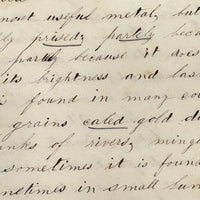 most useful metal, but
prised; partely beca
partly because it does
its brightness and las
is found in many cou
grains caled gold du
nks of rivers, mingl
sometimes it is found
metimes in small lum